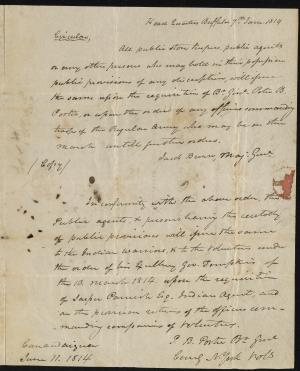 Head Quarters Buffalo 7th June 1814
Circular,
All public Store keepers, public agents
or any other persons who may hold in their possession
public provisions of any description, will issue
the same upon the requisition of Br Genl Peter B.
Porter, or upon the order of any officer commanding
troops of the Regular Army who may be on their
march until further orders.
Jacob Brown Maj: Genl
(Copy)
In conformity with the above order, the
Public agents & persons having the custody
of public provisions will issue the same
to the Indian Warriors, & to the Volunteers under
the order of his Excellency Gov. Tompkins of
the 13 March 1814, upon the requisition
of Jasper Parrish Esq. Indian Agent, and
on the provision returns of the officers com-
manding companies of Volunteers.
P. B. Porter Br Genl
Comg N York Vols
Canandaigua
June 11. 1814